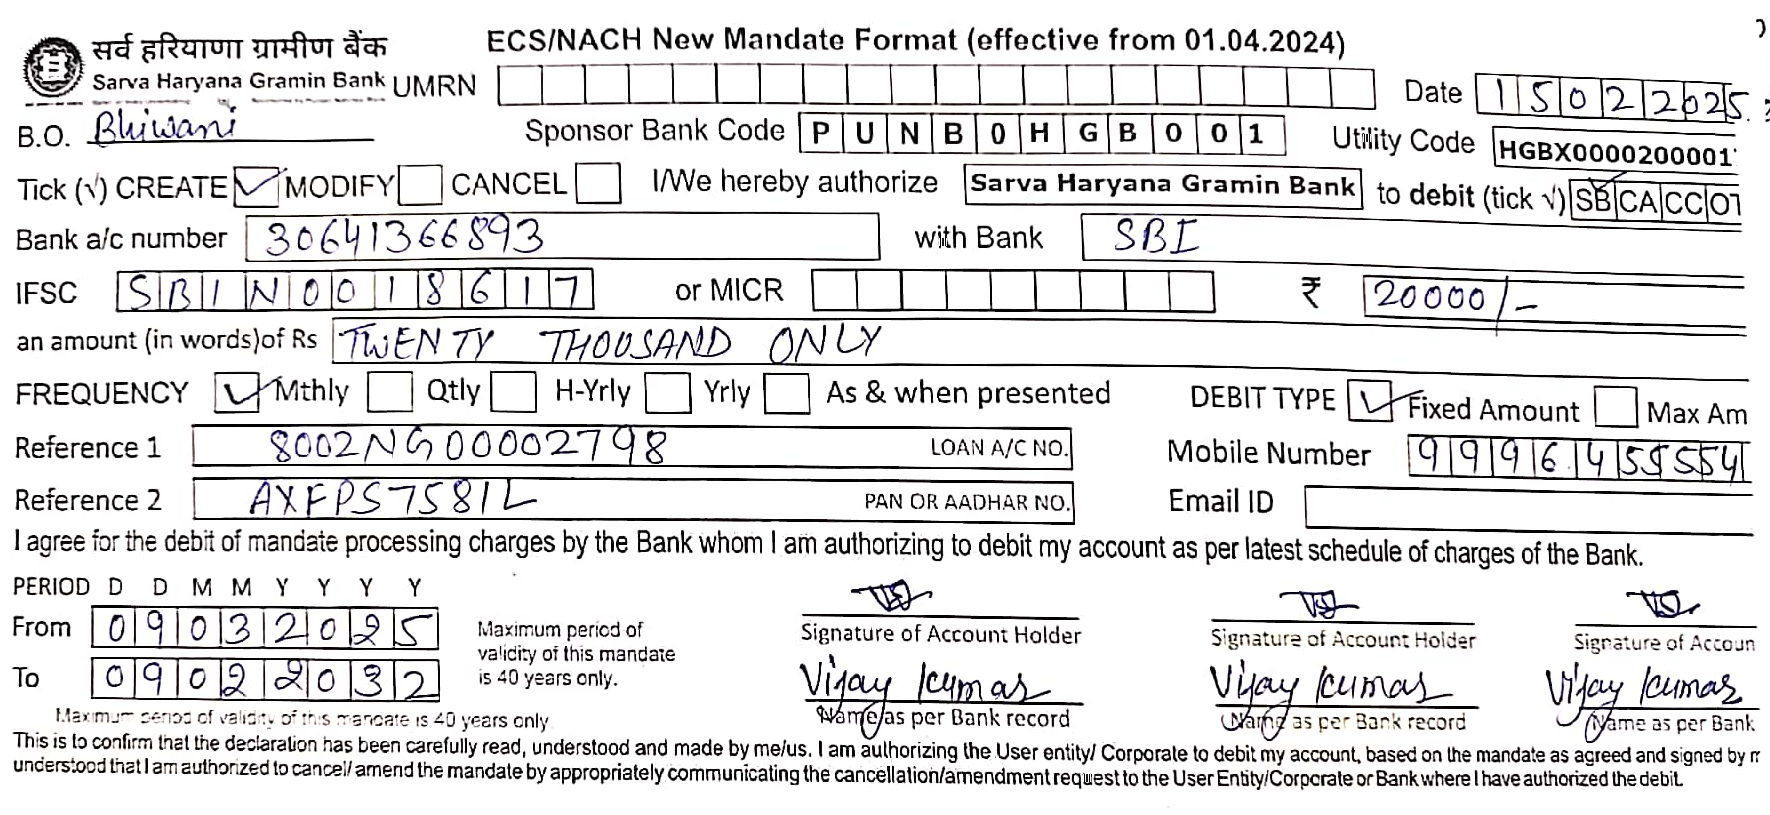 सर्व हरियाणा ग्रामीण बैंक
ECS/NACH New Mandate Format (effective from 01.04.2024)
Sarva Haryana Gramin Bank UMRN Date 15022025
B.O. Bhiwani Sponsor Bank Code PUNB0HGB001 Utility Code HGBX0000200001
Tick (√) CREATE ✓ MODIFY CANCEL I/We hereby authorize Sarva Haryana Gramin Bank to debit (tick √) SB CA CC OT
Bank a/c number 30641366893 with Bank SBI
IFSC SBIN0018617 or MICR ₹ 20000/-
an amount (in words)of Rs TWENTY THOUSAND ONLY
FREQUENCY ✓ Mthly Qtly H-Yrly Yrly As & when presented DEBIT TYPE ✓ Fixed Amount Max Am
Reference 1 8002NG00002798 LOAN A/C NO. Mobile Number 9996455554
Reference 2 AXFPS7581L PAN OR AADHAR NO. Email ID
I agree for the debit of mandate processing charges by the Bank whom I am authorizing to debit my account as per latest schedule of charges of the Bank.
PERIOD D D M M Y Y Y Y
From 09032025 Maximum period of validity of this mandate is 40 years only. Signature of Account Holder Signature of Account Holder Signature of Accoun
To 09022032 Vijay Kumar Vijay Kumar Vijay Kumar
Maximum period of validity of this mandate is 40 years only. Name as per Bank record Name as per Bank record Name as per Bank
This is to confirm that the declaration has been carefully read, understood and made by me/us. I am authorizing the User entity/ Corporate to debit my account, based on the mandate as agreed and signed by
understood that I am authorized to cancel/ amend the mandate by appropriately communicating the cancellation/amendment request to the User Entity/Corporate or Bank where I have authorized the debit.